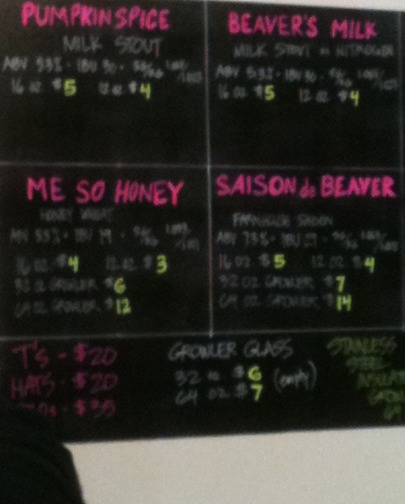 PUMPKIN SPICE
MILK STOUT
ABV 5.3% • IBU 30 •
16 oz $5 12 oz $4
BEAVER'S MILK
MILK STOUT on NITROGEN
ABV 5.3% • IBU 30 •
16 oz $5 12 oz $4
ME SO HONEY
HONEY WHEAT
ABV 5.5% • IBU 19 •
16 oz $4 12 oz $3
32 oz GROWLER $6
64 oz GROWLER $12
SAISON de BEAVER
FARMHOUSE SAISON
ABV 7.3% • IBU
16 oz $5 12 oz $4
32 oz GROWLER $7
64 oz GROWLER $14
T'S - $20
HATS - $20
- $35
GROWLER GLASS
32 oz $6 (empty)
64 oz $7
STAINLESS
STEEL